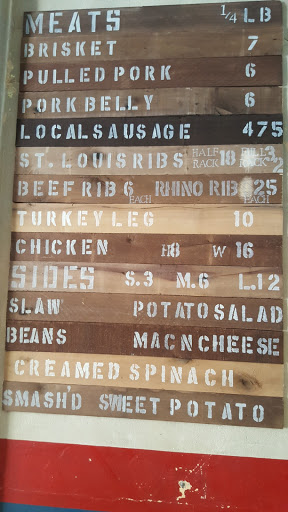 MEATS 1/4 LB
BRISKET 7
PULLED PORK 6
PORK BELLY 6
LOCAL SAUSAGE 475
ST. LOUIS RIBS HALF RACK 18 FULL RACK 32
BEEF RIB 6 EACH RHINO RIB 25 EACH
TURKEY LEG 10
CHICKEN H8 W 16
SIDES S.3 M.6 L.12
SLAW POTATO SALAD
BEANS MAC N CHEESE
CREAMED SPINACH
SMASH'D SWEET POTATO